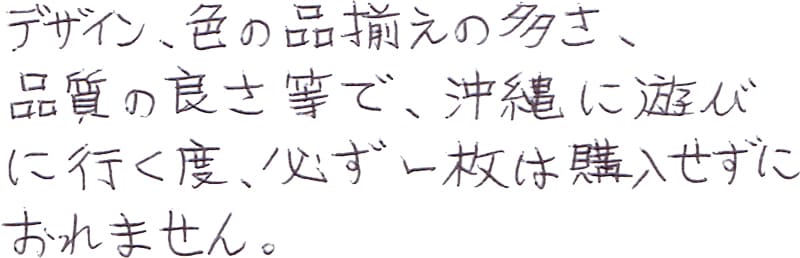 デザイン、色の品揃えの多さ、
品質の良さ等で、沖縄に遊び
に行く度、必ず一枚は購入せずに
おれません。